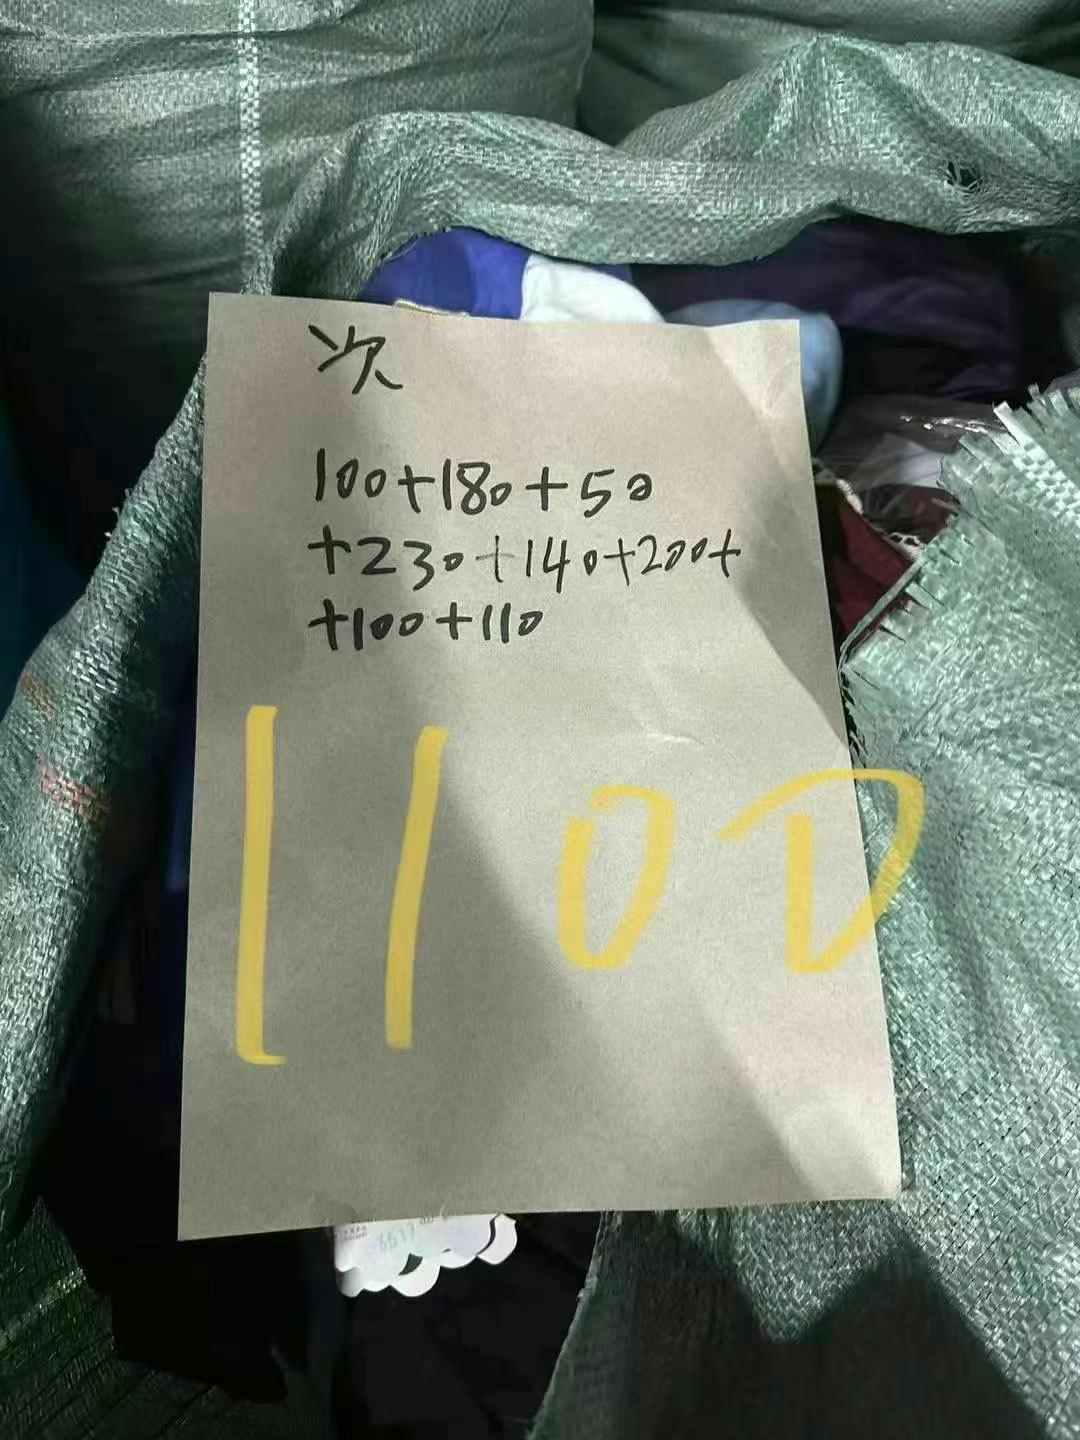 次
100+180+50
+230+140+200+
+100+110
1100
3517